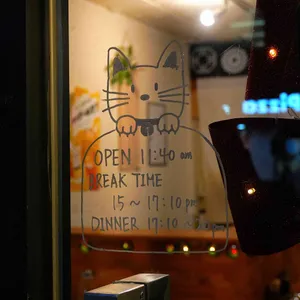 OPEN 11:40 am
BREAK TIME
15 ~ 17:10 pm
DINNER 17:10